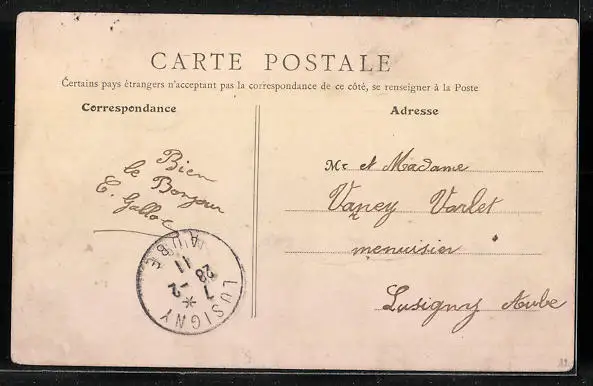 CARTE POSTALE
Certains pays étrangers n'acceptant pas la correspondance de ce côté, se renseigner à la Poste
Correspondance
Bien
le Bonjour
E. Galloc
Adresse
Mr et Madame
Vaney Varlet
menuisier
Lusigny Aube
LUSIGNY
AUBE
7 -2
28
11